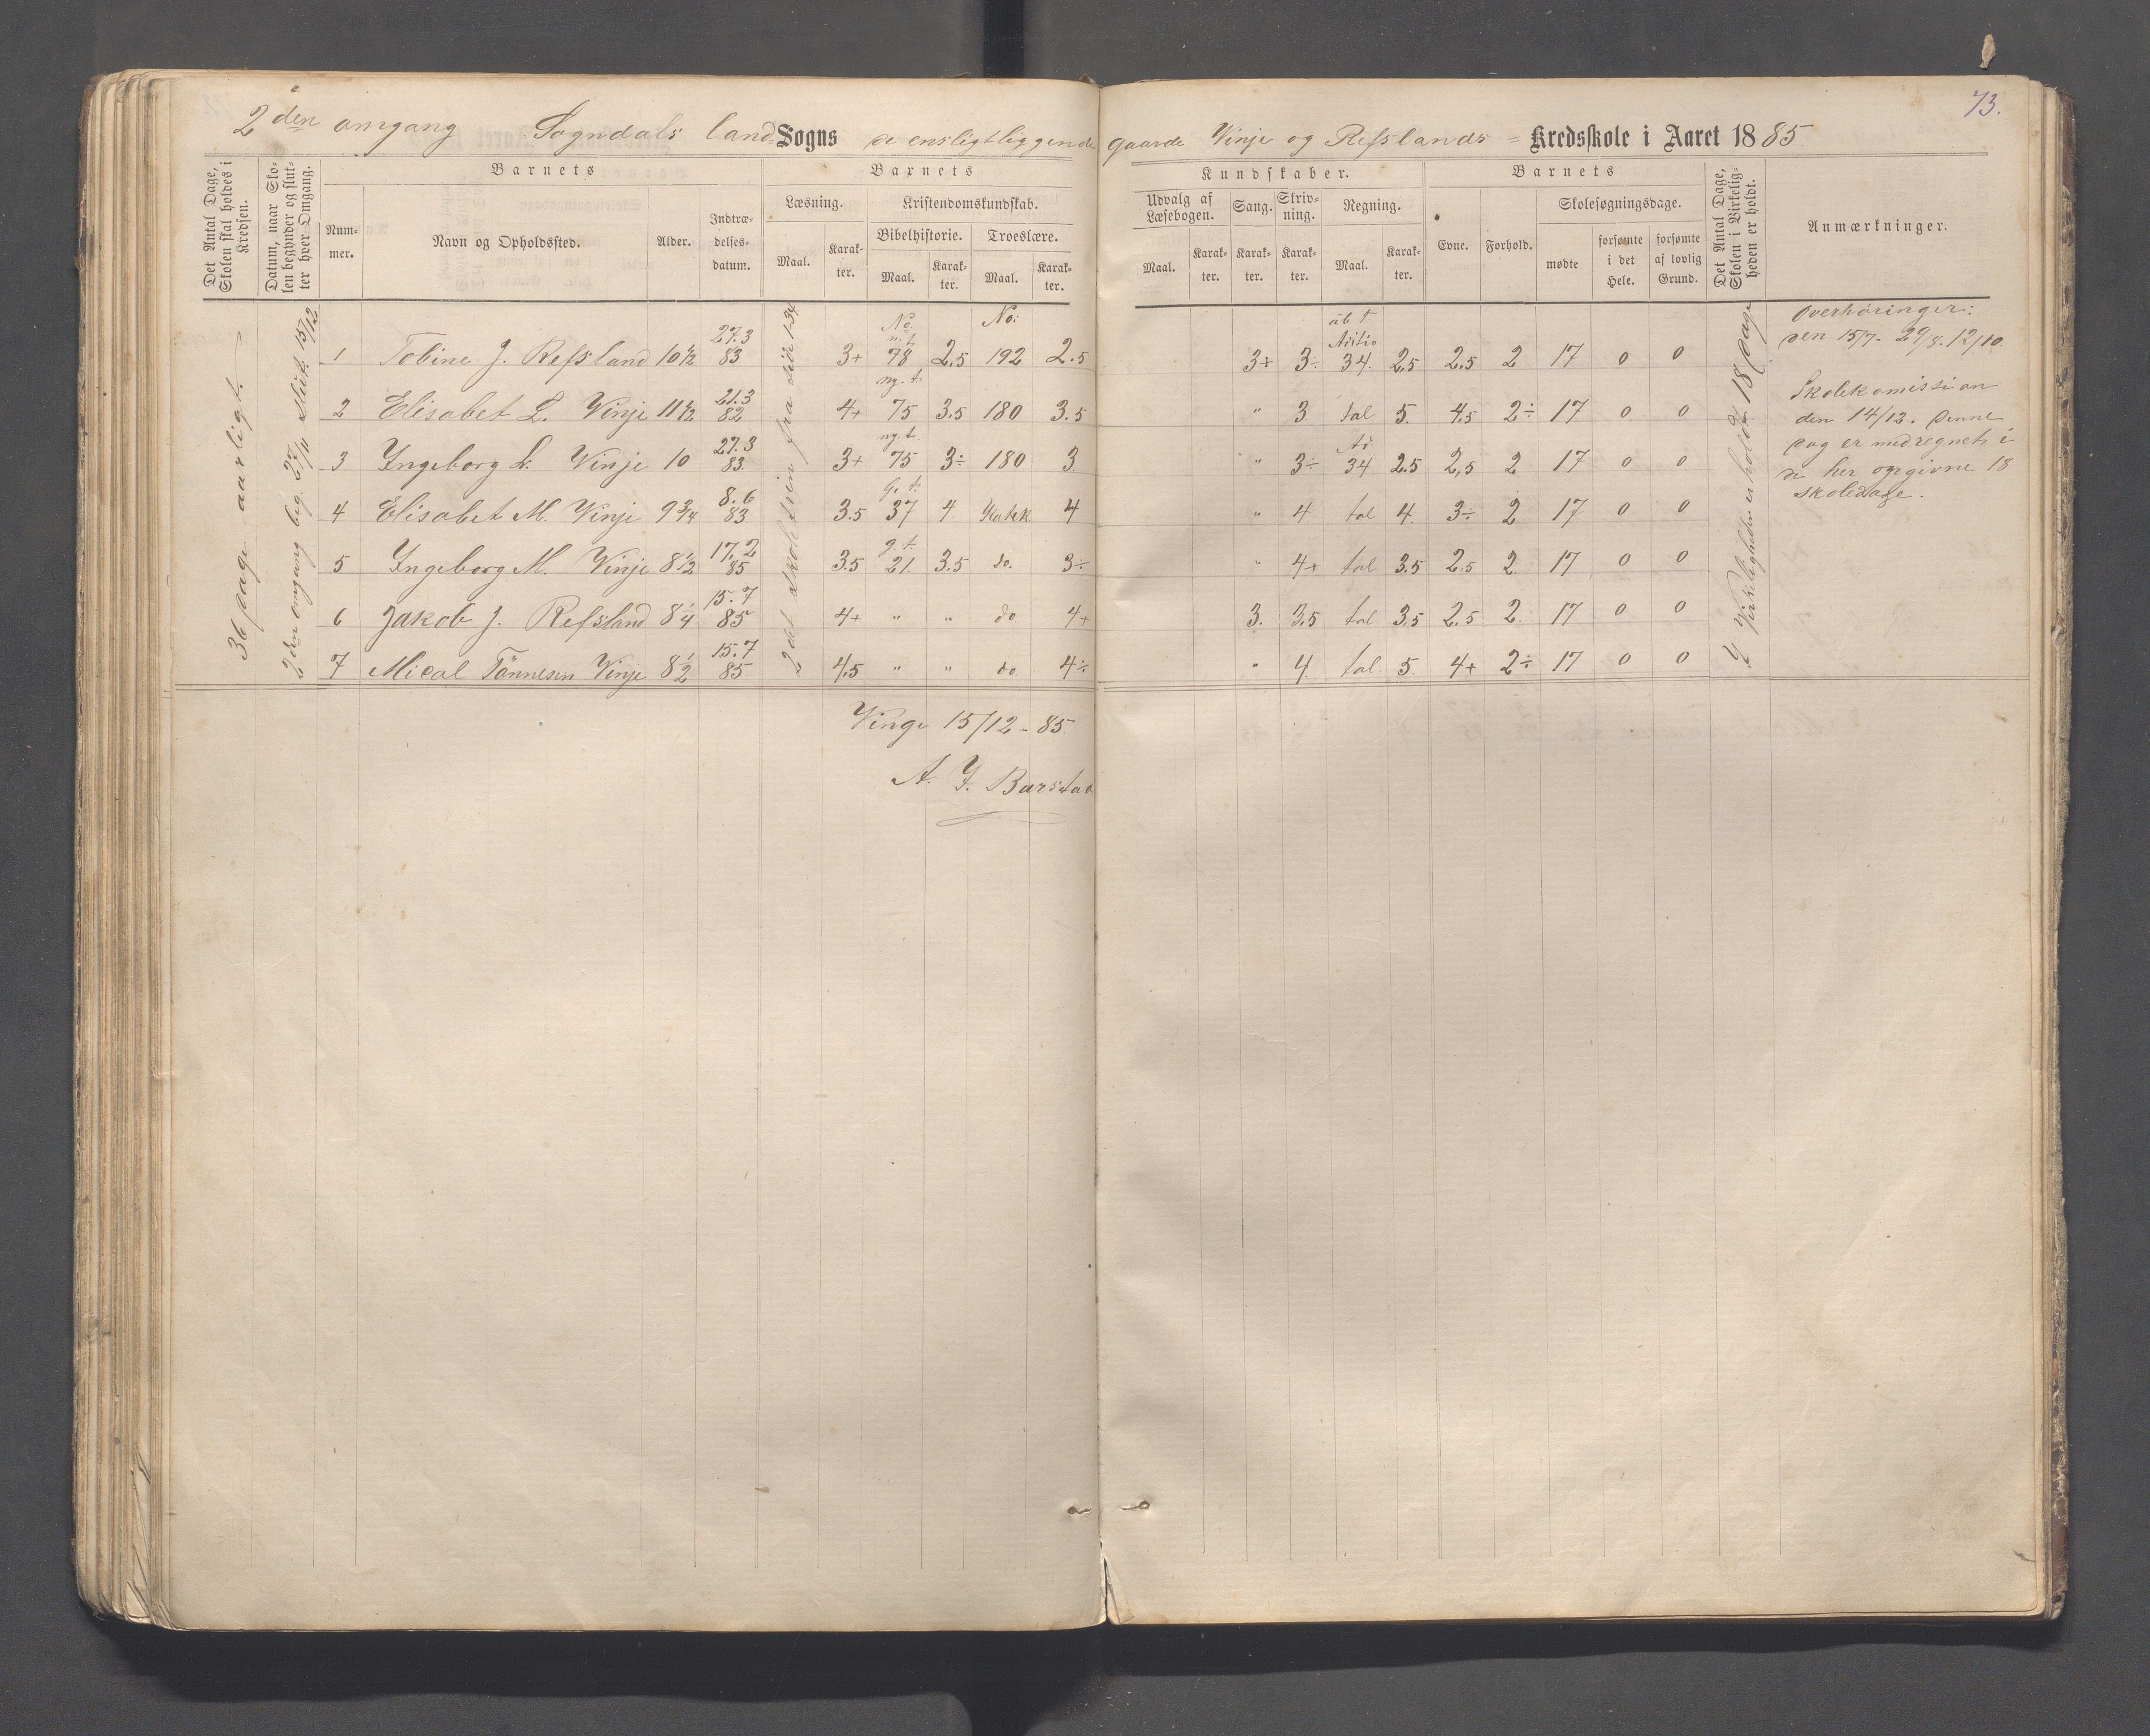 73.
2den omgang Sogndals land Sogns de ensligtliggende gaarde Vinje og Refslands = Kredsskole i Aaret 1885
Det Antal Dage, Skolen skal holdes i Kredsen.
Datum, naar Skolen begynder og slutter hver Omgang.
Barnets
Nummer.
Navn og Opholdssted.
Alder.
Indtrædelsesdatum.
Barnets
Læsning.
Maal.
Karakter.
Kristendomskundskab.
Bibelhistorie.
Maal.
Karakter.
Troeslære.
Maal.
Karakter.
Kundskaber.
Udvalg af Læsebogen.
Maal.
Karakter.
Sang.
Karakter.
Skrivning.
Karakter.
Regning.
Maal.
Karakter.
Barnets
Evne.
Forhold.
Skolesøgningsdage.
mødte
forsømte i det Hele.
forsømte af lovlig Grund.
Det Antal Dage, Skolen i Virkeligheden er holdt.
Anmærkninger.
36 dage aarligt.
2den omgang beg. 27/11 slut. 15/12
2det skoletrin fra side 1-34
No. No:
1 Tobine J. Refsland 10 1/2 27.3 83 3+ n.t. 78 2.5 192 2.5 3+ 3÷ 34. 2,5 2,5 2 17 0 0
2 Elisabet L. Vinje 11 1/2 21.3 82 4+ ny.t. 75 3.5 180 3.5 " 3 tal 5. 4,5 2÷ 17 0 0
3 Ingeborg L. Vinje 10 27.3 83. 3+ ny.t. 75 3÷ 180 3 " 3÷ 34 2.5 2,5 2 17 0 0
4 Elisabet M. Vinje 9 3/4 8.6 83 3.5 G.t. 37 4 Katek. 4 " 4 tal 4. 3÷ 2 17 0 0
5 Ingeborg M. Vinje 8 1/2 17.2 85 3.5 g.t. 21. 3.5 do. 3÷ " 4+ tal 3,5 2.5 2. 17 0 0
6 Jakob J. Refsland 8 1/4 15.7 85 4+ " " do 4+ 3. 3,5 tal 3,5 2.5 2. 17 0 0
7 Mical Tönnesen Vinje 8 1/2 15.7 85 4,5 " " do 4÷ " 4. tal. 5. 4+ 2÷ 17 0 0
I Virkeligheden er holdt 18 dage
Overhöringer:
den 15/7- 29/8. 12/10.
Skolekomission
den 14/12. Denne
dag er medregnet i
de her opgivne 18
skoledage.
Vinge 15/12 - 85.
A. Y. Barstad